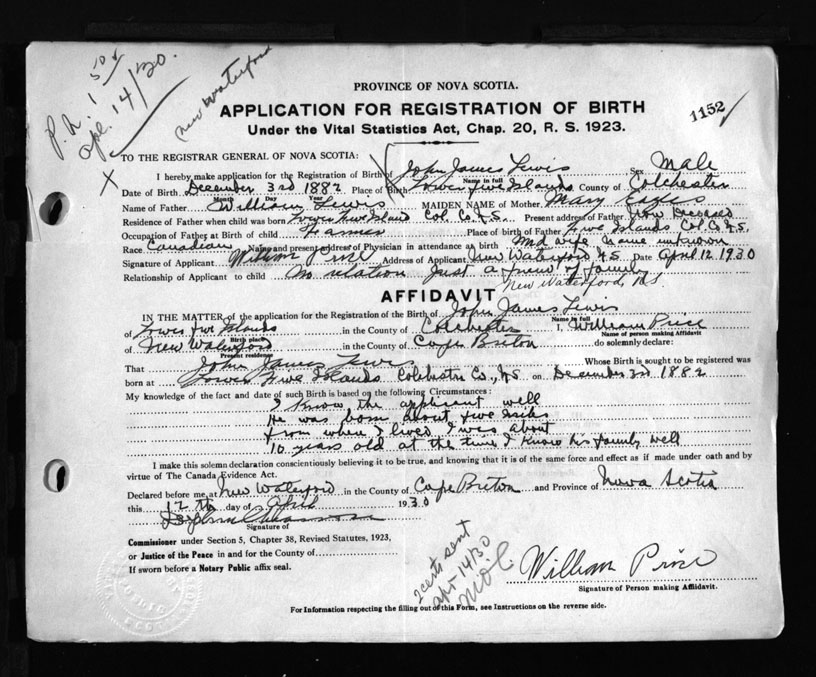 P.N. 1 50¢
Apl. 14/30.
New Waterford
PROVINCE OF NOVA SCOTIA.
APPLICATION FOR REGISTRATION OF BIRTH
1152
Under the Vital Statistics Act, Chap. 20, R. S. 1923.
TO THE REGISTRAR GENERAL OF NOVA SCOTIA:
I hereby make application for the Registration of Birth of John James Lewis Sex Male
Name in full
Date of Birth December 3rd 1882 Place of Birth Lower five Islands County of Colchester
Month Day Year
Name of Father William Lewis MAIDEN NAME of Mother Mary
Residence of Father when child was born Lower Five Island Col. Co. N.S. Present address of Father Now Deceased
Occupation of Father at Birth of child Farmer Place of birth of Father Five Islands Col Co N.S.
Race Canadian Name and present address of Physician in attendance at birth Mid wife name unknown
Signature of Applicant William Price Address of Applicant New Waterford N.S. Date April 12 1930
Relationship of Applicant to child No relation Just a friend of family
New Waterford, N.S.
AFFIDAVIT
IN THE MATTER of the application for the Registration of the Birth of John James Lewis
Name in full
of Lower five Islands in the County of Colchester I, William Price
Birth place Name of person making Affidavit
of New Waterford in the County of Cape Briton do solemnly declare:
Present residence
That John James Lewis Whose Birth is sought to be registered was
born at Lower Five Islands Colchester Co., N.S. on December 3rd 1882
My knowledge of the fact and date of such Birth is based on the following Circumstances:
I know the applicant well
He was born about five miles
from where I lived I was about
10 years old at the time I know his family well
I make this solemn declaration conscientiously believing it to be true, and knowing that it is of the same force and effect as if made under oath and by
virtue of The Canada Evidence Act.
Declared before me at New Waterford in the County of Cape Briton and Province of Nova Scotia
this 12th day of April 1930
Signature of
Commissioner under Section 5, Chapter 38, Revised Statutes, 1923,
or Justice of the Peace in and for the County of
If sworn before a Notary Public affix seal.
2 certs sent
Apr 14/30
William Price
Signature of Person making Affidavit.
For Information respecting the filling out of this Form, see Instructions on the reverse side.